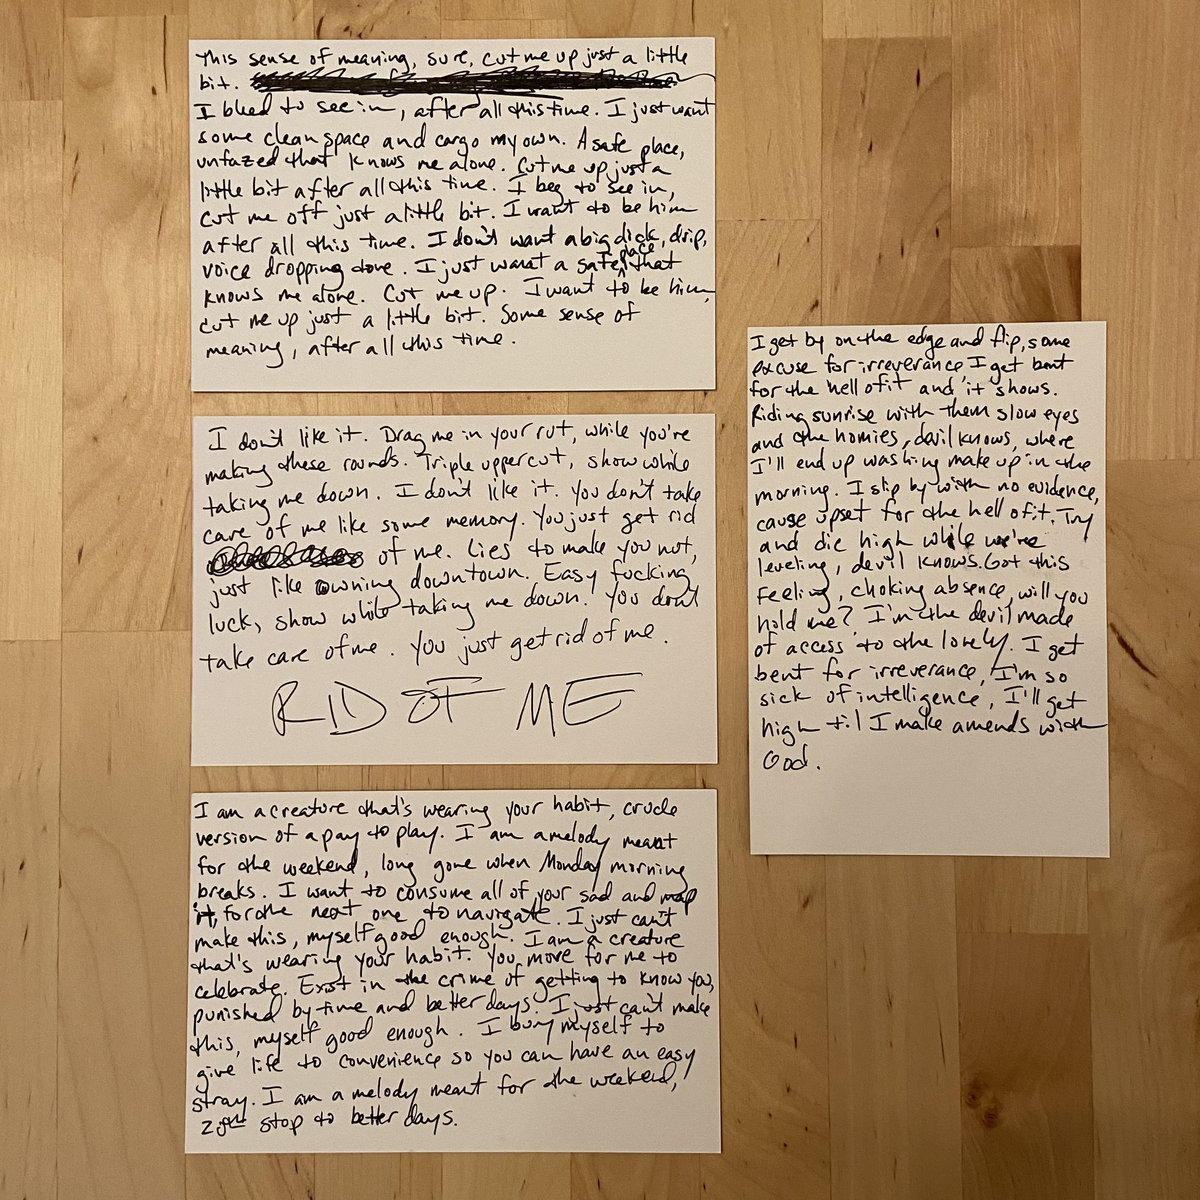 This sense of meaning, sure, cut me up just a little
bit.
I bleed to see in, after all this time. I just want
some clean space and cargo my own. A safe place,
unfazed that knows me alone. Cut me up just a
little bit after all this time. I beg to see in,
cut me off just a little bit. I want to be him
after all this time. I don't want a big dick, drip,
voice dropping tone. I just want a safe place that
knows me alone. Cut me up. I want to be him,
cut me up just a little bit. Some sense of
meaning, after all this time.
I don't like it. Drag me in your rut, while you're
making these rounds. Triple uppercut, show while
taking me down. I don't like it. You don't take
care of me like some memory. You just get rid
of me. Lies to make you not,
just like owning downtown. Easy fucking
luck, show while taking me down. You don't
take care of me. You just get rid of me.
RID OF ME
I am a creature that's wearing your habit, crude
version of a pay to play. I am a melody meant
for the weekend, long gone when Monday morning
breaks. I want to consume all of your sad and map
it, for the next one to navigate. I just can't
make this, myself good enough. I am a creature
that's wearing your habit. You move for me to
celebrate. Exist in the crime of getting to know you,
punished by time and better days. I just can't make
this, myself good enough. I bury myself to
give life to convenience so you can have an easy
stray. I am a melody meant for the weekend,
stop to better days.
I get by on the edge and flip, some
excuse for irreverance I get bent
for the hell of it and it shows.
Riding sunrise with them slow eyes
and the homies, devil knows, where
I'll end up washing make up in the
morning. I slip by with no evidence,
cause upset for the hell of it. Try
and die high while we're
leveling, devil knows. Got this
feeling, choking absence, will you
hold me? I'm the devil made
of access to the lonely. I get
bent for irreverance, I'm so
sick of intelligence, I'll get
high til I make amends with
God.